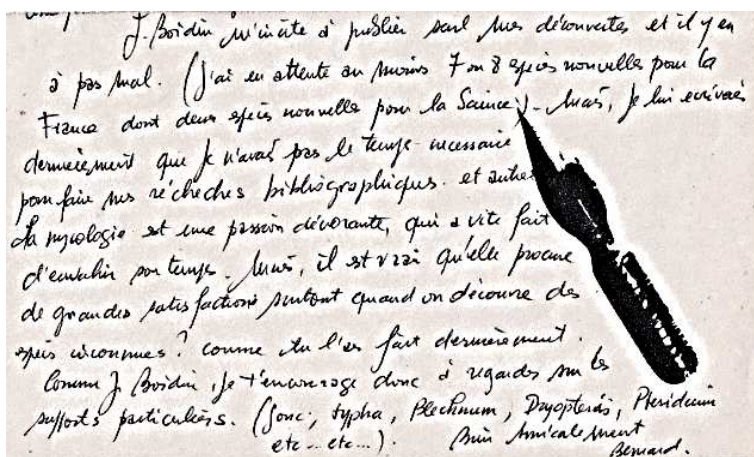 J. Boidin m'incite à publier seul mes découvertes et il y en
a pas mal. (J'ai en attente au moins 7 ou 8 espèces nouvelles pour la
France dont deux espèces nouvelle pour la Science). Mais, je lui ecrivais
dernièrement que je n'avais pas le temps necessaire
pour faire mes récherches bibliographiques. et autres
La mycologie est une passion dévorante, qui a vite fait
d'envahir son temps. Mais, il est vrai qu'elle procure
de grandes satisfactions surtout quand on découvre des
espèces inconnues? comme tu l'as fait dernièrement.
Comme J. Boidin, je t'encourage donc à regarder sur les
supports particuliers. (Jonc, typha, Blechnum, Dryopteris, Pteridium
etc... etc...). Bien Amicalement
Bernard.